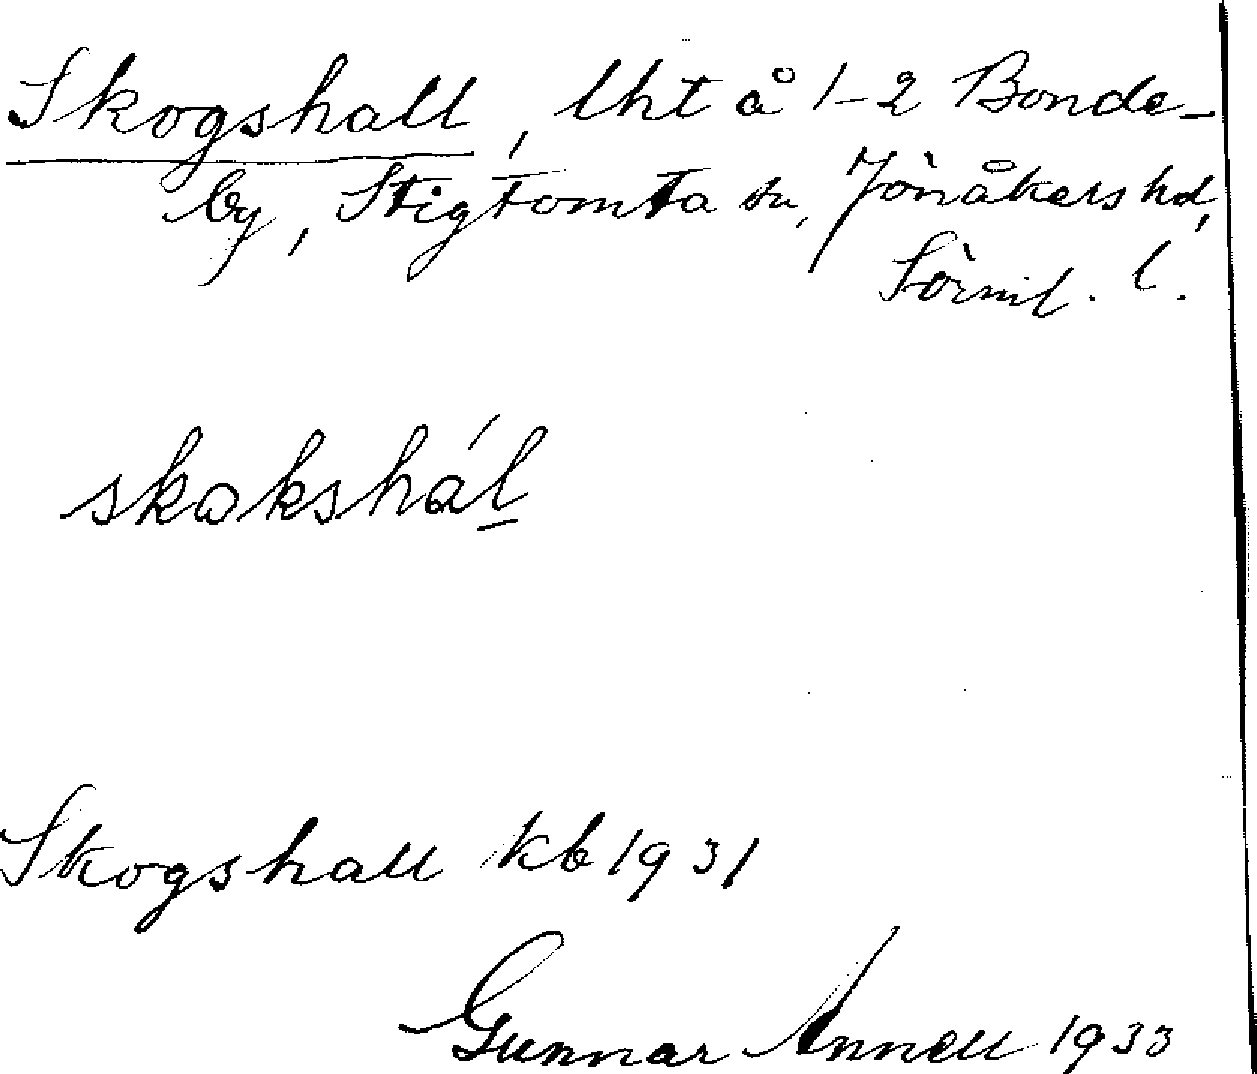 Skogshall, lht å 1-2 Bonde-
by, Stigtomta sn, Jönåkers hd,
Sörml. l.
skakshál
Skogshall kb 1931
Gunnar Annell 1933